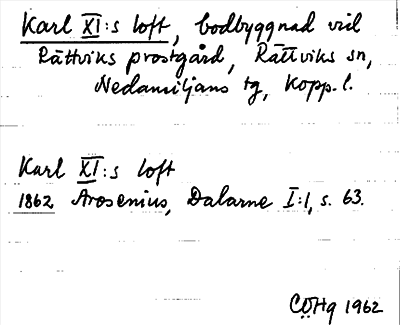 Karl XI:s loft, bodbyggnad vid
Rättviks prostgård, Rättviks sn,
Nedansiljans tg, Kopp. l.
Karl XI:s loft
1862 Arosenius, Dalarne I:1, s. 63.
CÖHg 1962